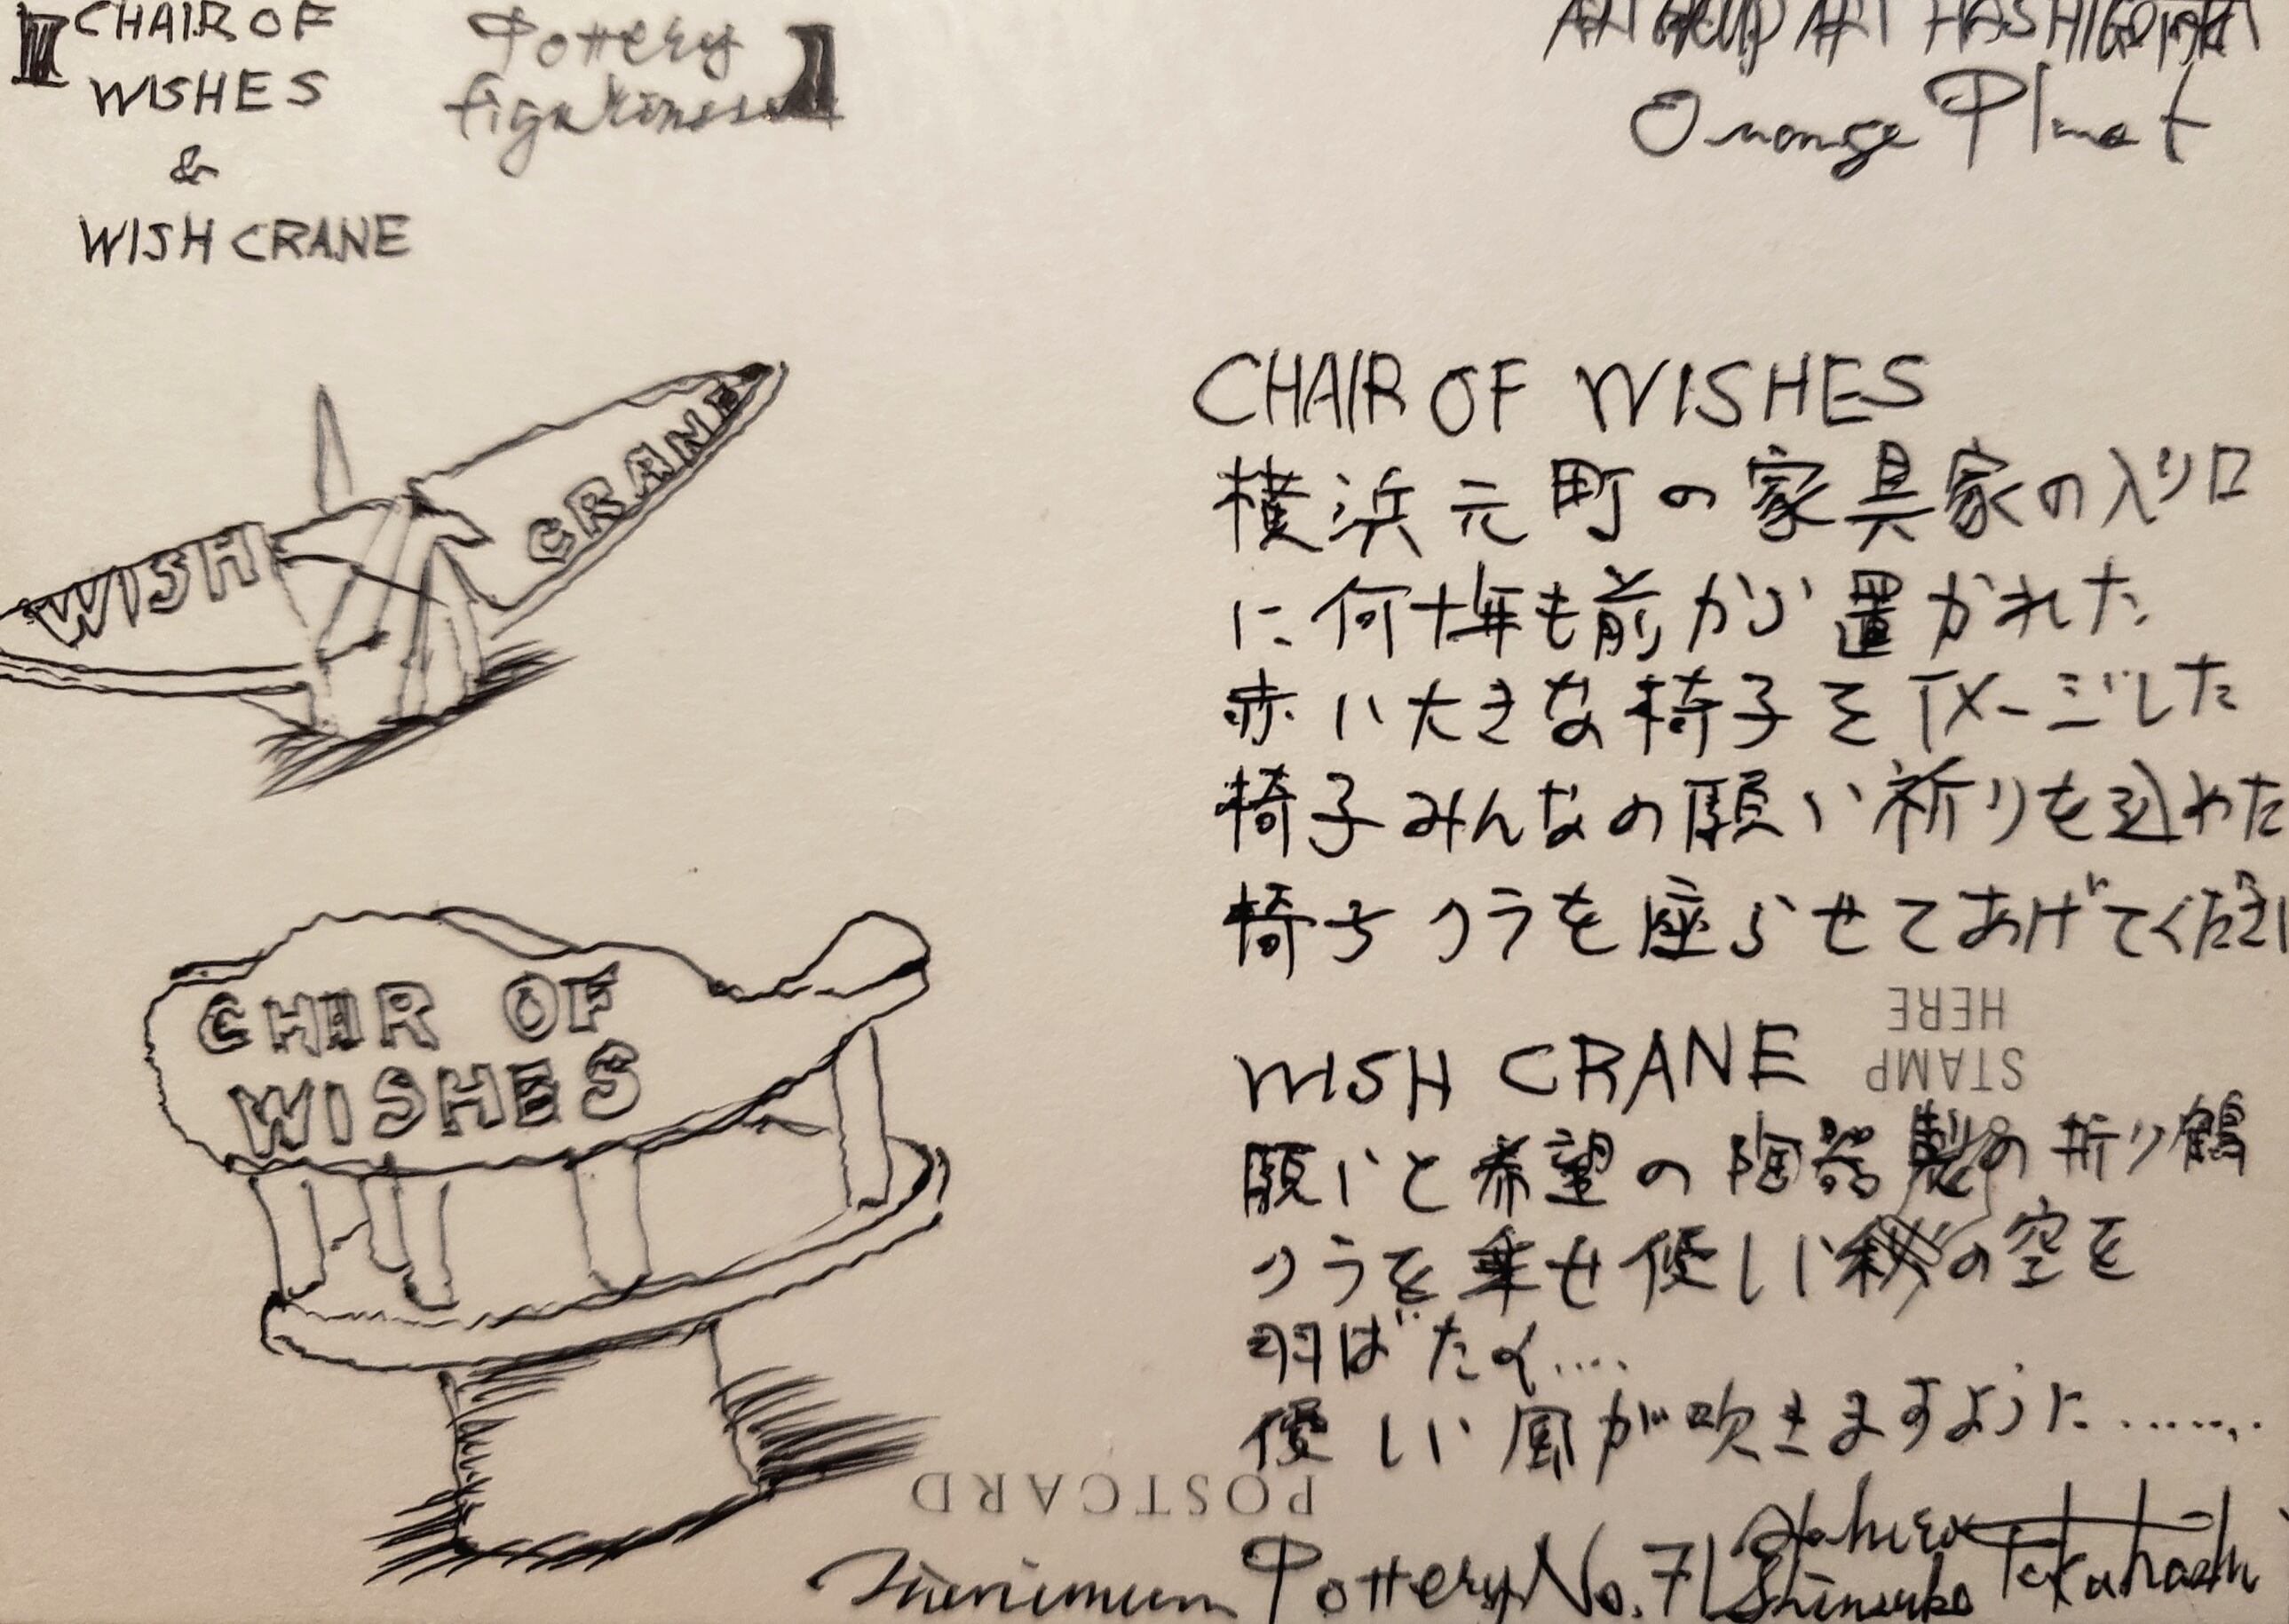 CHAIR OF
WISHES
&
WISH CRANE
Pottery
figurines
Orange Planet
WISH CRANE
CHAIR OF
WISHES
CHAIR OF WISHES
横浜元町の家具家の入り口
に何十年も前から置かれた
赤い大きな椅子をイメージした
椅子みんなの願い祈りを込めた
椅子クラを座らせてあげてください
STAMP
HERE
WISH CRANE
願いと希望の陶器製の折り鶴
クラを乗せ優しい秋の空を
羽ばたく....
優しい風が吹きますように.......
POSTCARD
Minimum Pottery No.71
Takahashi